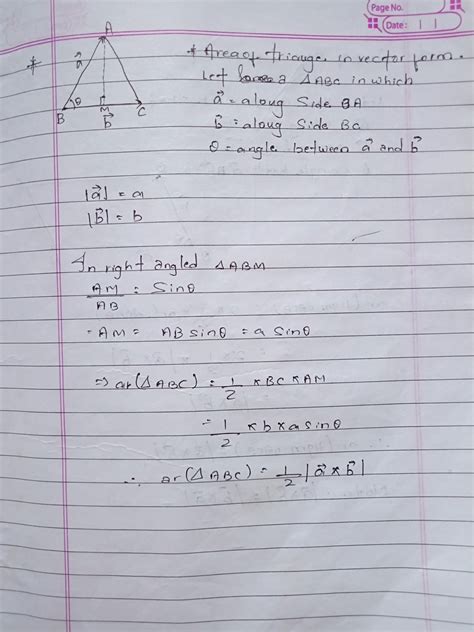 Page No.
Date: | |
A
* * Area of triange in vector form.
a⃗ Let a ΔABC in which
a⃗ = along Side BA
θ M C b⃗ = along Side BC
B b⃗ θ = angle between a⃗ and b⃗
|a⃗| = a
|b⃗| = b
In right angled ΔABM
AM/AB = Sinθ
- AM = AB sinθ = a Sinθ
⇒ ar(ΔABC) = 1/2 × BC × AM
= 1/2 × b × a sinθ
∴ ar(ΔABC) = 1/2 |a⃗ × b⃗|